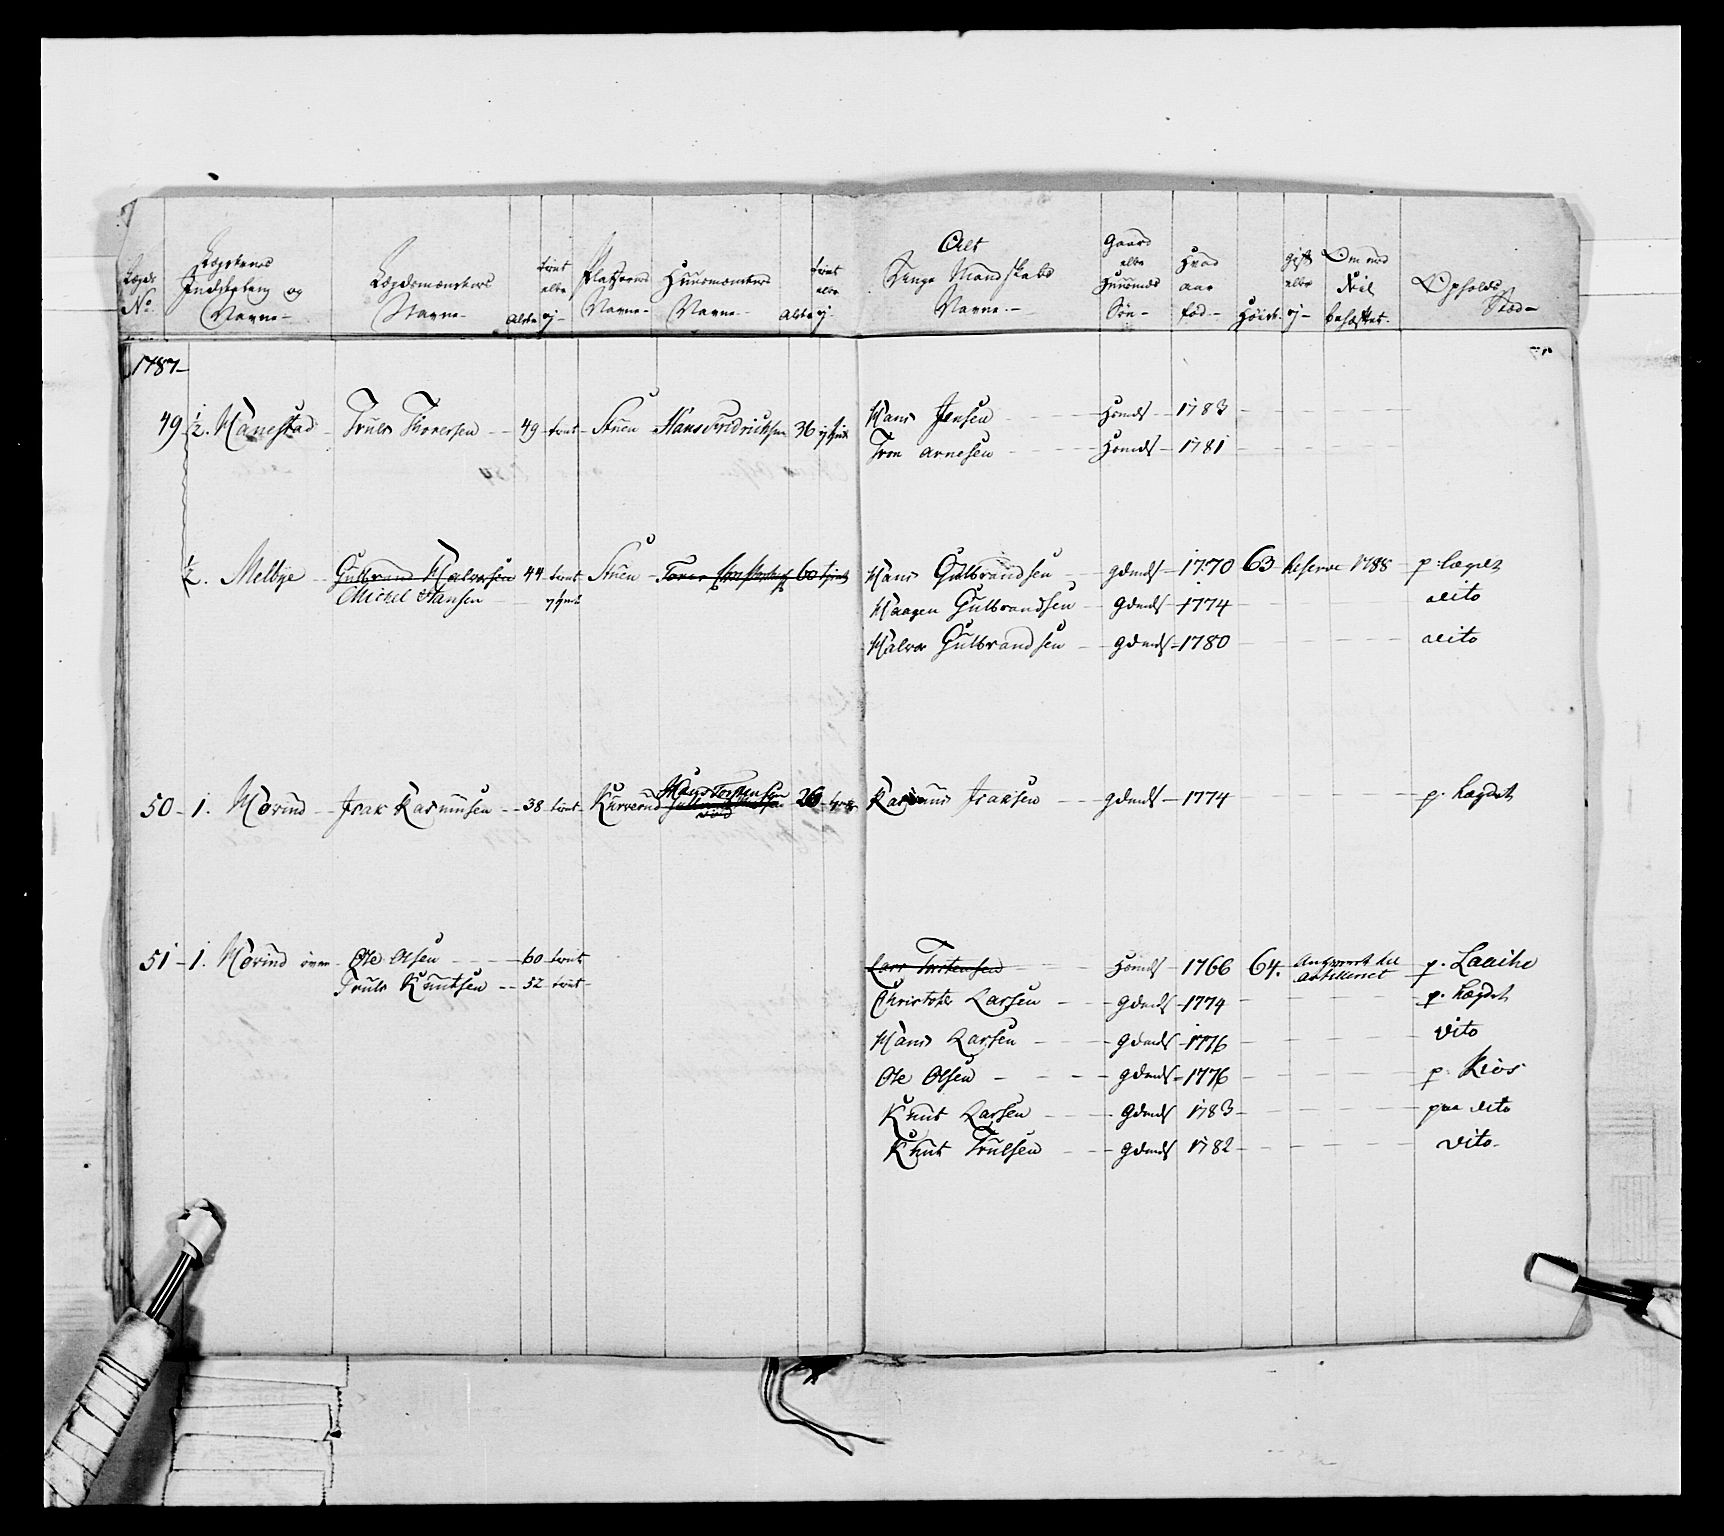 Lægds No.
Lægdenes Inddeling og Navne
Lægdsmændenes Navne
Alder
tient eller ej
Pladsernes Navne
Huusmændenes Navne
Alder
tient eller ej
Alt Unge Mandskabs Navne
Gaard eller Huusmands Søn
Hvad aar fød
Høide
gift eller ej
Om med Pas behæftet
Opholds Stæd
1787
49 ½. Hanestad Truls Thoresen 49 tient Stuen Hans Fridrichsen 36 ej tient Hans Jensen Hmds 1783
Tron Arnesen Hmds 1781
½. Melbye Gulbrand Halvorsen 44 tient Stuen 60 tient Hans Gulbrandsen gdmds 1770 63 Reserve 1788 p. lægdet
Michel Hansen ej tient Haagen Gulbrandsen gdmds 1774 dito
Halvor Gulbrandsen gdmds 1780 dito
Hans Torstensen
50 1. Hovind Isak Rasmusen 38 tient Kurverud 26 Rasmus Isaksen gdmds 1774 p. Lægdet
51 1. Hovind øvre Ole Olsen 60 tient Lars Torstensen Hmds 1766 64. Angivet til Artilleriet p. Laaihe
Truls Knutsen 52 tient Christofer Larsen gdmds 1774 p. Lægdet
Hans Larsen gdmds 1776 dito
Ole Olsen gdmds 1776 p. Kios
Knut Larsen gdmds 1783 paa dito
Knut Trulsen gdmds 1782 dito